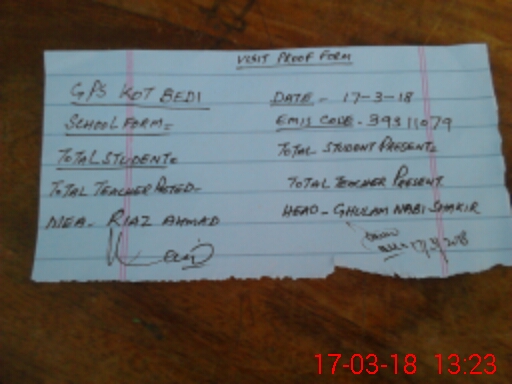 VISIT PROOF FORM
GPS KOT BEDI DATE - 17-3-18
SCHOOL FORM = EMIS CODE - 39311079
TOTAL STUDENT = TOTAL STUDENT PRESENT =
TOTAL TEACHER POSTED - TOTAL TEACHER PRESENT
MEA - RIAZ AHMAD HEAD - GHULAM NABI SHAKIR
17-03-18 13:23